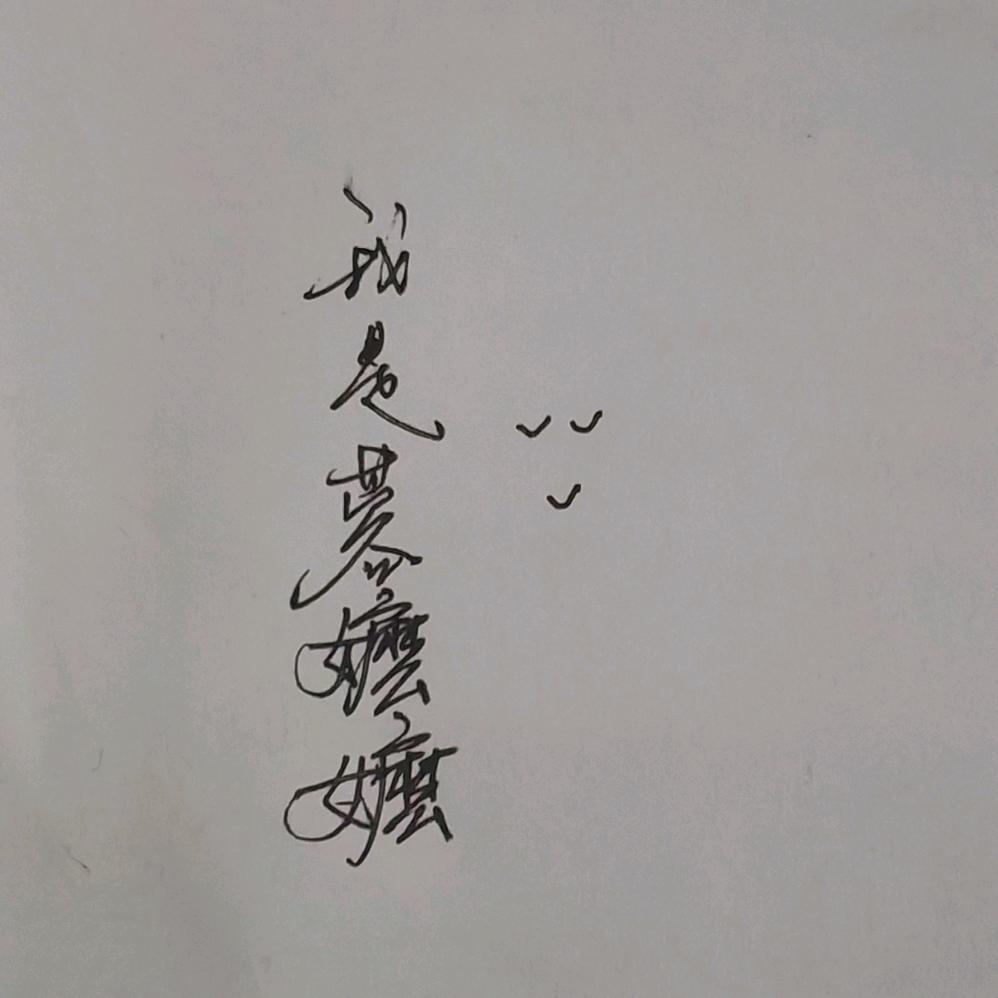 我是慕嬷嬷